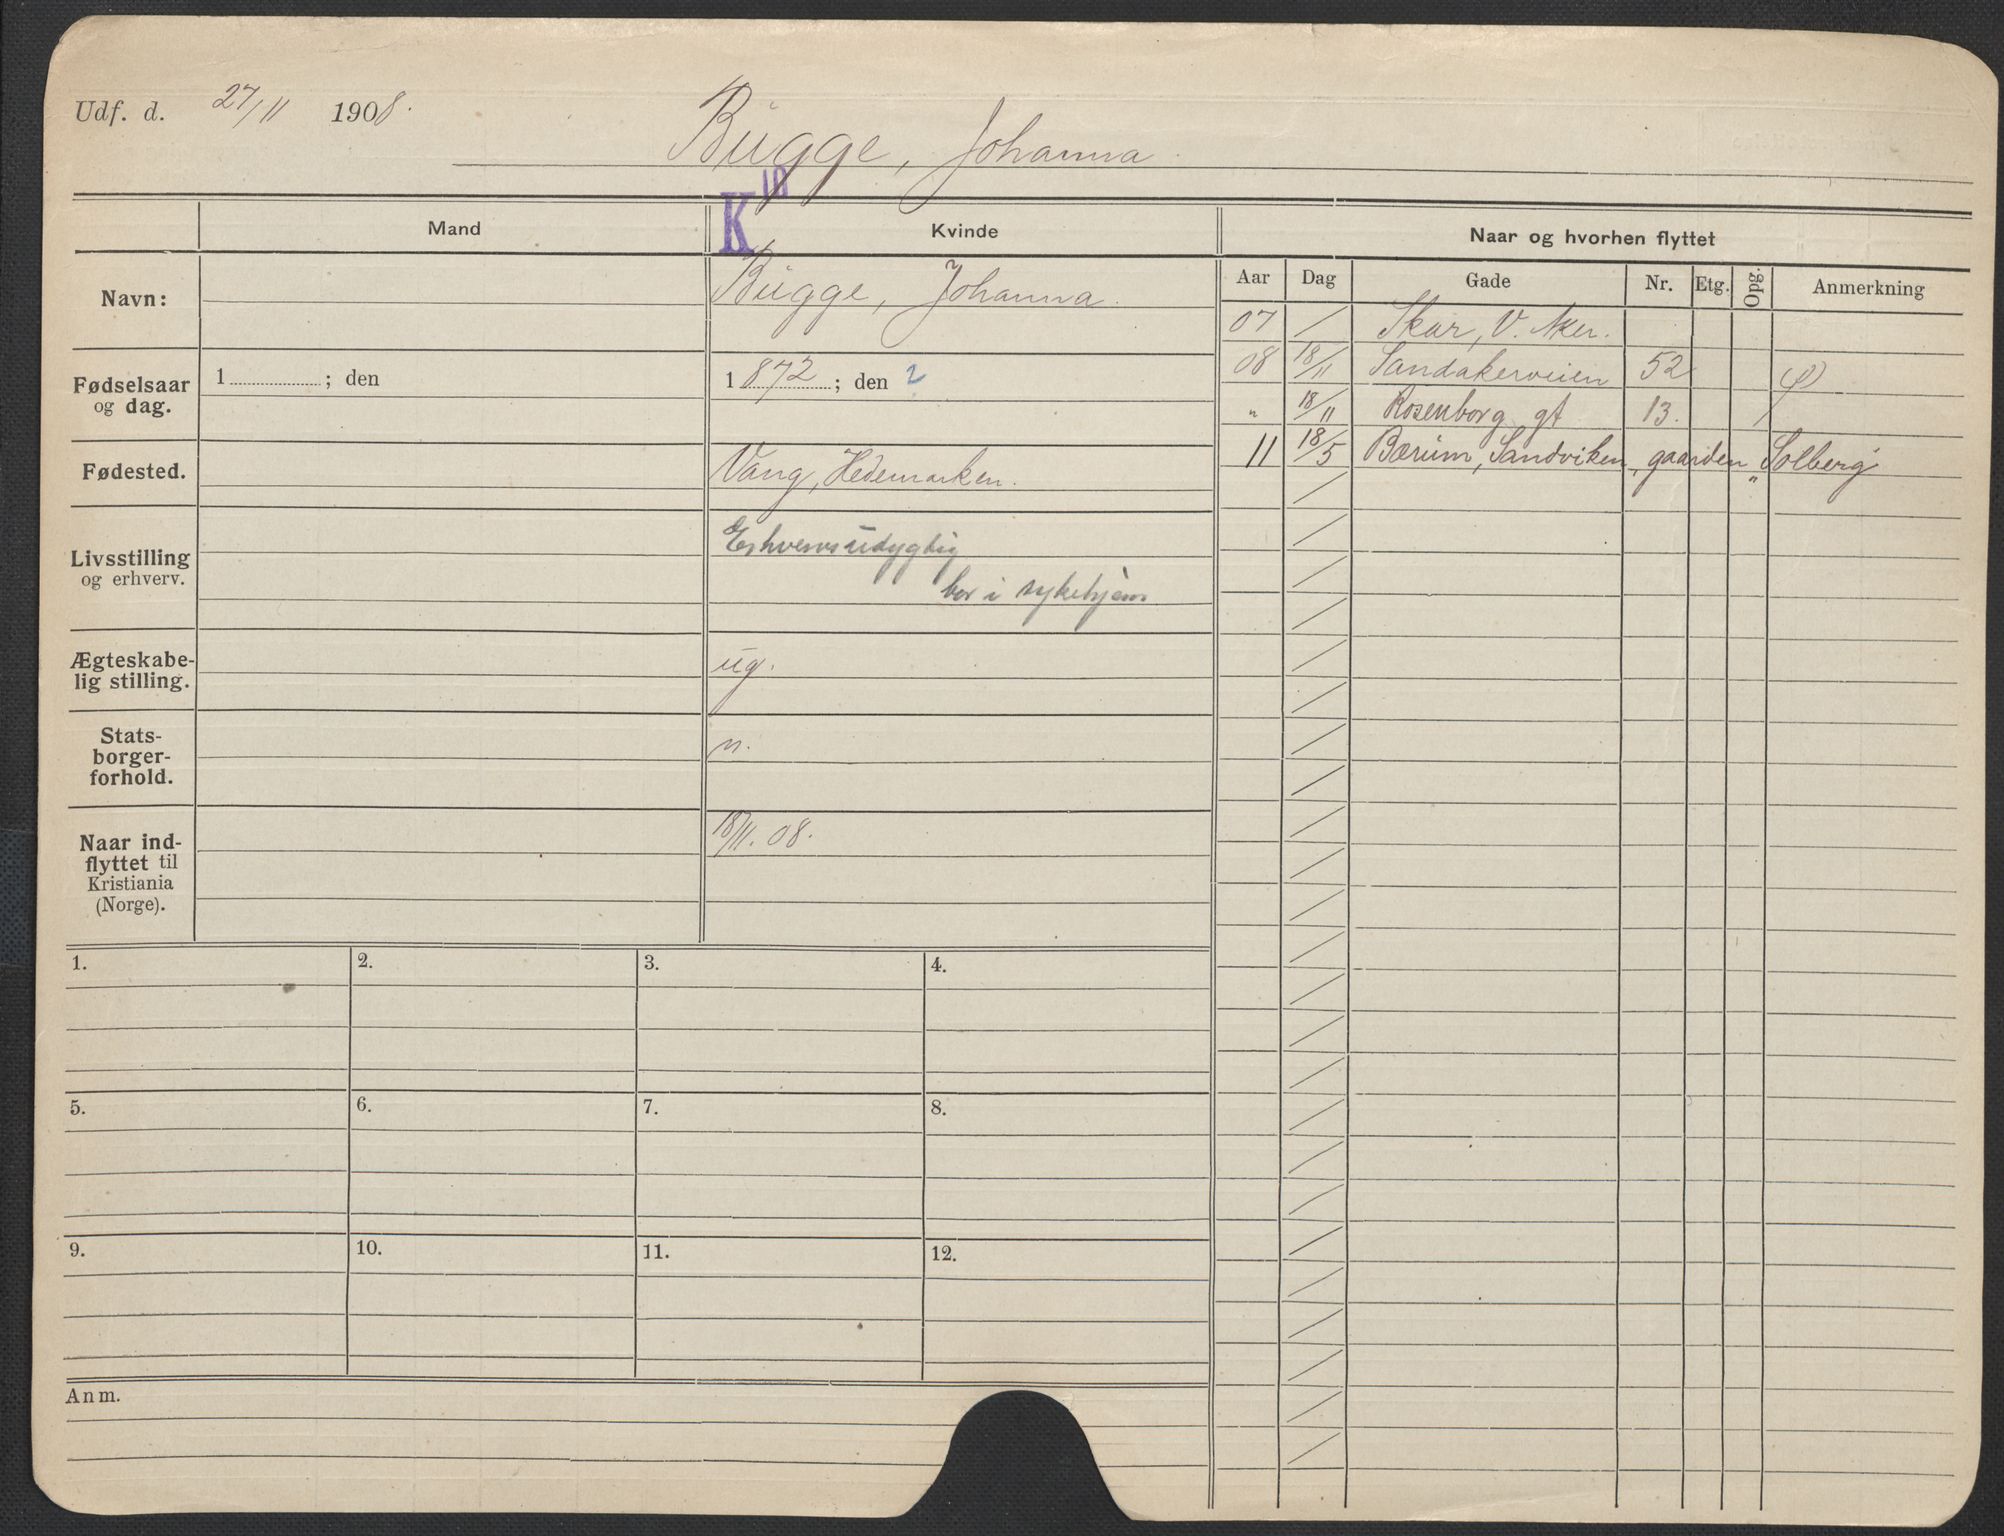 Udf. d. 27/11 1908.
Bugge, Johanna.
K 18
Mand
Kvinde
Naar og hvorhen flyttet
Aar Dag Gade Nr. Etg. Opg. Anmerkning
Navn:
Bugge, Johanna.
Fødselsaar
og dag.
1 ; den
1 872 ; den ?
Fødested.
Vang, Hedemarken.
Livsstilling
og erhverv.
Erhvervsudygtig
bor i sykehjem
Ægteskabe-
lig stilling.
ug.
Stats-
borger-
forhold.
n.
Naar ind-
flyttet til
Kristiania
(Norge).
18/11. 08.
07 / Skar, V. Aker.
08 18/11 Sandakerveien 52
" 18/11 Rosenborg gt 13.
11 18/5 Bærum, Sandviken, gaarden „Solberg"
1. 2. 3. 4.
5. 6. 7. 8.
9. 10. 11. 12.
Anm.